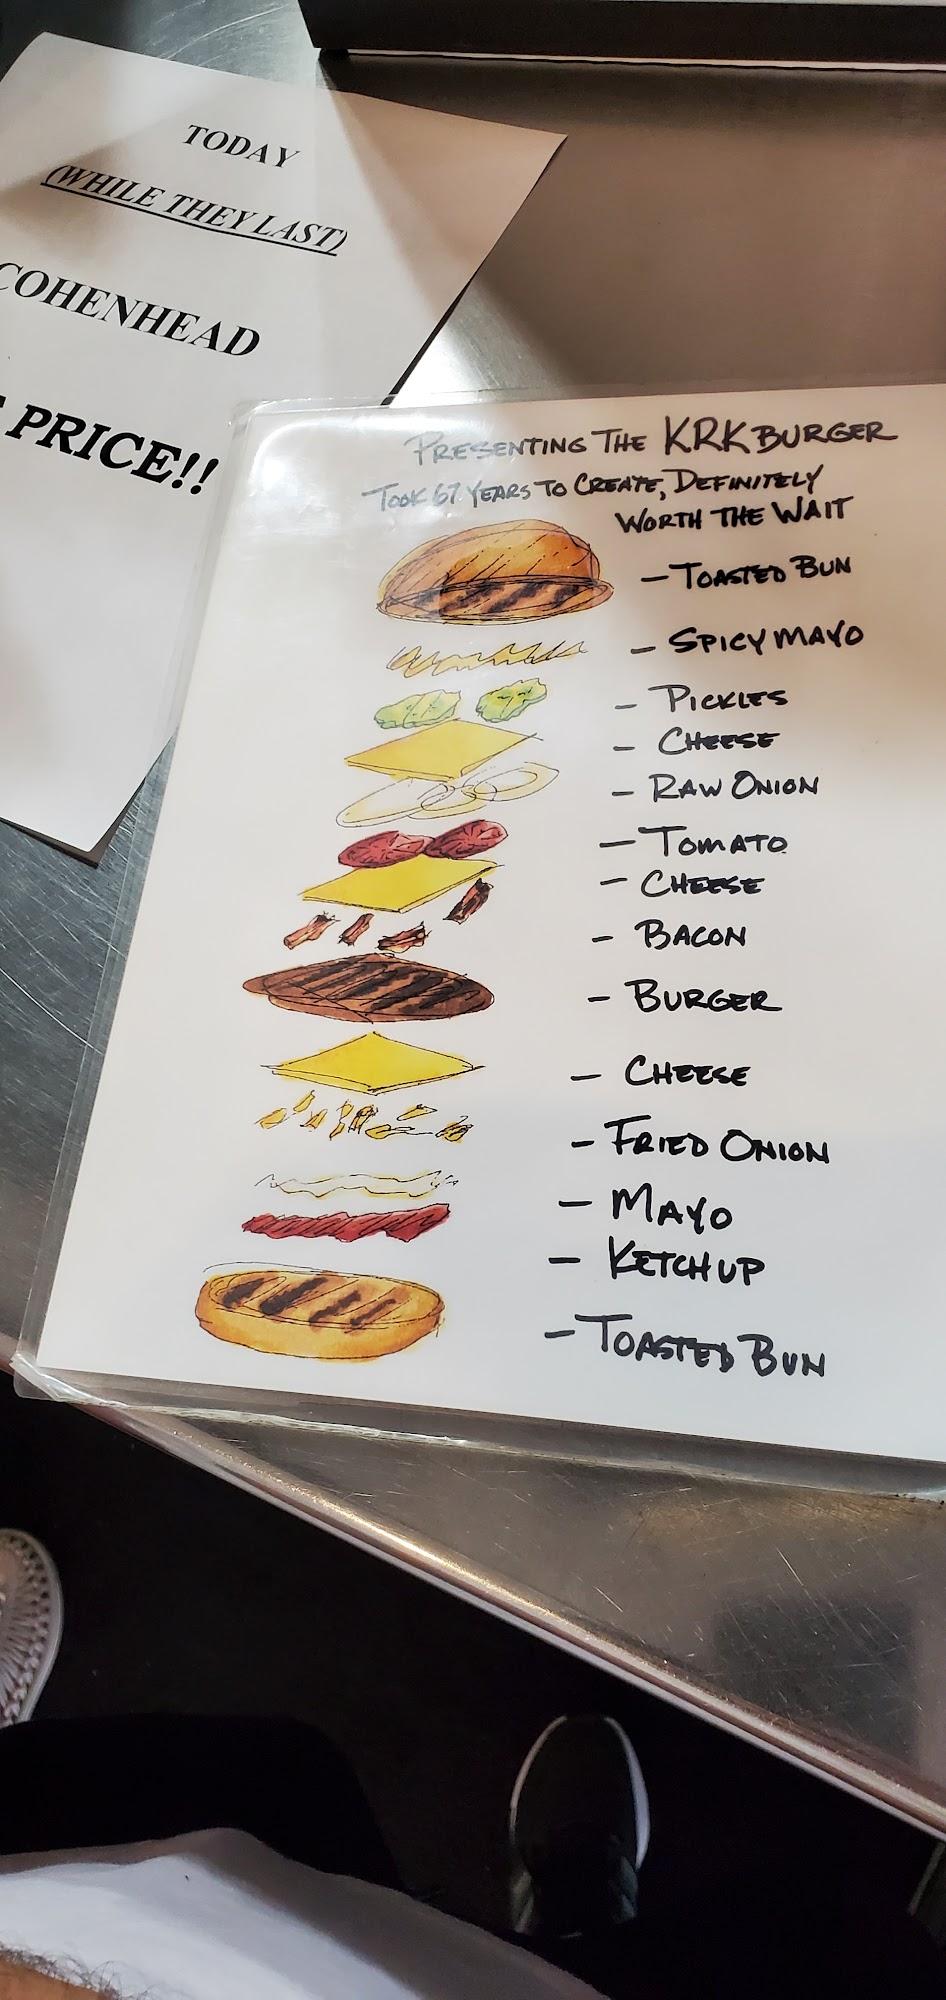 TODAY
(WHILE THEY LAST)
COHENHEAD
PRICE!!
PRESENTING THE KRK BURGER
TOOK 67 YEARS TO CREATE, DEFINITELY
WORTH THE WAIT
- TOASTED BUN
- SPICY MAYO
- PICKLES
- CHEESE
- RAW ONION
- TOMATO
- CHEESE
- BACON
- BURGER
- CHEESE
- FRIED ONION
- MAYO
- KETCHUP
- TOASTED BUN